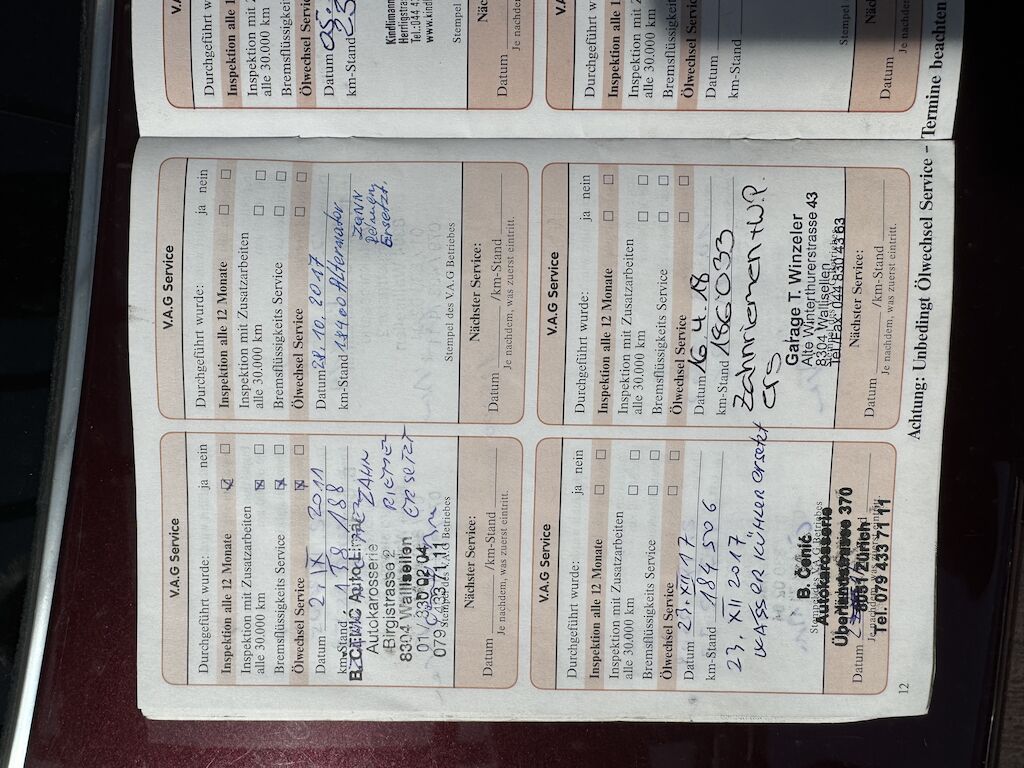 V.A.G Service
Durchgeführt wurde: ja nein
Inspektion alle 12 Monate
Inspektion mit Zusatzarbeiten
alle 30.000 km
Bremsflüssigkeits Service
Ölwechsel Service
Datum 2. IX 2011
km-Stand 138 188
ZAHN
RIEMEN
ERSETZT
B. CENIC Auto
Autokarosserie
Birgistrasse 2
8304 Wallisellen
01 830 02 04
079 433 71 11
Stempel des V.A.G Betriebes
Nächster Service:
Datum /km-Stand
Je nachdem, was zuerst eintritt.
V.A.G Service
Durchgeführt wurde: ja nein
Inspektion alle 12 Monate
Inspektion mit Zusatzarbeiten
alle 30.000 km
Bremsflüssigkeits Service
Ölwechsel Service
Datum 28.10.2017
km-Stand Alternator
ZAHN
Ersetzt.
Stempel des V.A.G Betriebes
Nächster Service:
Datum /km-Stand
Je nachdem, was zuerst eintritt.
V.A.G Service
Durchgeführt wurde: ja nein
Inspektion alle 12 Monate
Inspektion mit Zusatzarbeiten
alle 30.000 km
Bremsflüssigkeits Service
Ölwechsel Service
Datum 23.XII 17
km-Stand 184 506
23 XII 2017
WASSER KÜHLER ersetzt
B. Cenic
Autokarosserie
Überlandstrasse 370
8051 Zürich
Tel. 079 433 71 11
Datum
12
V.A.G Service
Durchgeführt wurde: ja nein
Inspektion alle 12 Monate
Inspektion mit Zusatzarbeiten
alle 30.000 km
Bremsflüssigkeits Service
Ölwechsel Service
Datum 16.4.18
km-Stand 186033
Zahnriemen + W.P.
ers
Garage T. Winzeler
Alte Winterthurerstrasse 43
8304 Wallisellen
Tel/Fax 044 830 43 63
Nächster Service:
Datum /km-Stand
Je nachdem, was zuerst eintritt.
Achtung: Unbedingt Ölwechsel Service - Termine beachten
Durchgeführt
Inspektion alle
Inspektion mit
alle 30.000 km
Ölwechsel Servi
Datum
km-Stand
Kindlimann
Tel.: 044
www.kindl
Stempel
Datum
Je nachdem
Durchgeführt
Inspektion alle
Inspektion mit
alle 30.000 km
Bremsflüssigke
Ölwechsel Serv
Datum
km-Stand
Stempel
Datum
Je nachdem